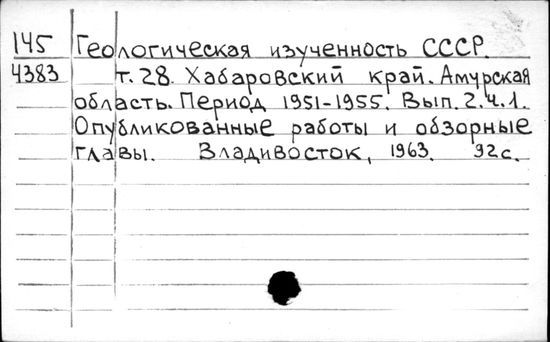 145 Геологическая изученность СССР.
4383 т. 28. Хабаровский край. Амурская
область. Период 1951-1955. Вып. 2. ч. 1.
Опубликованные работы и обзорные
главы. Владивосток, 1963. 92 с.